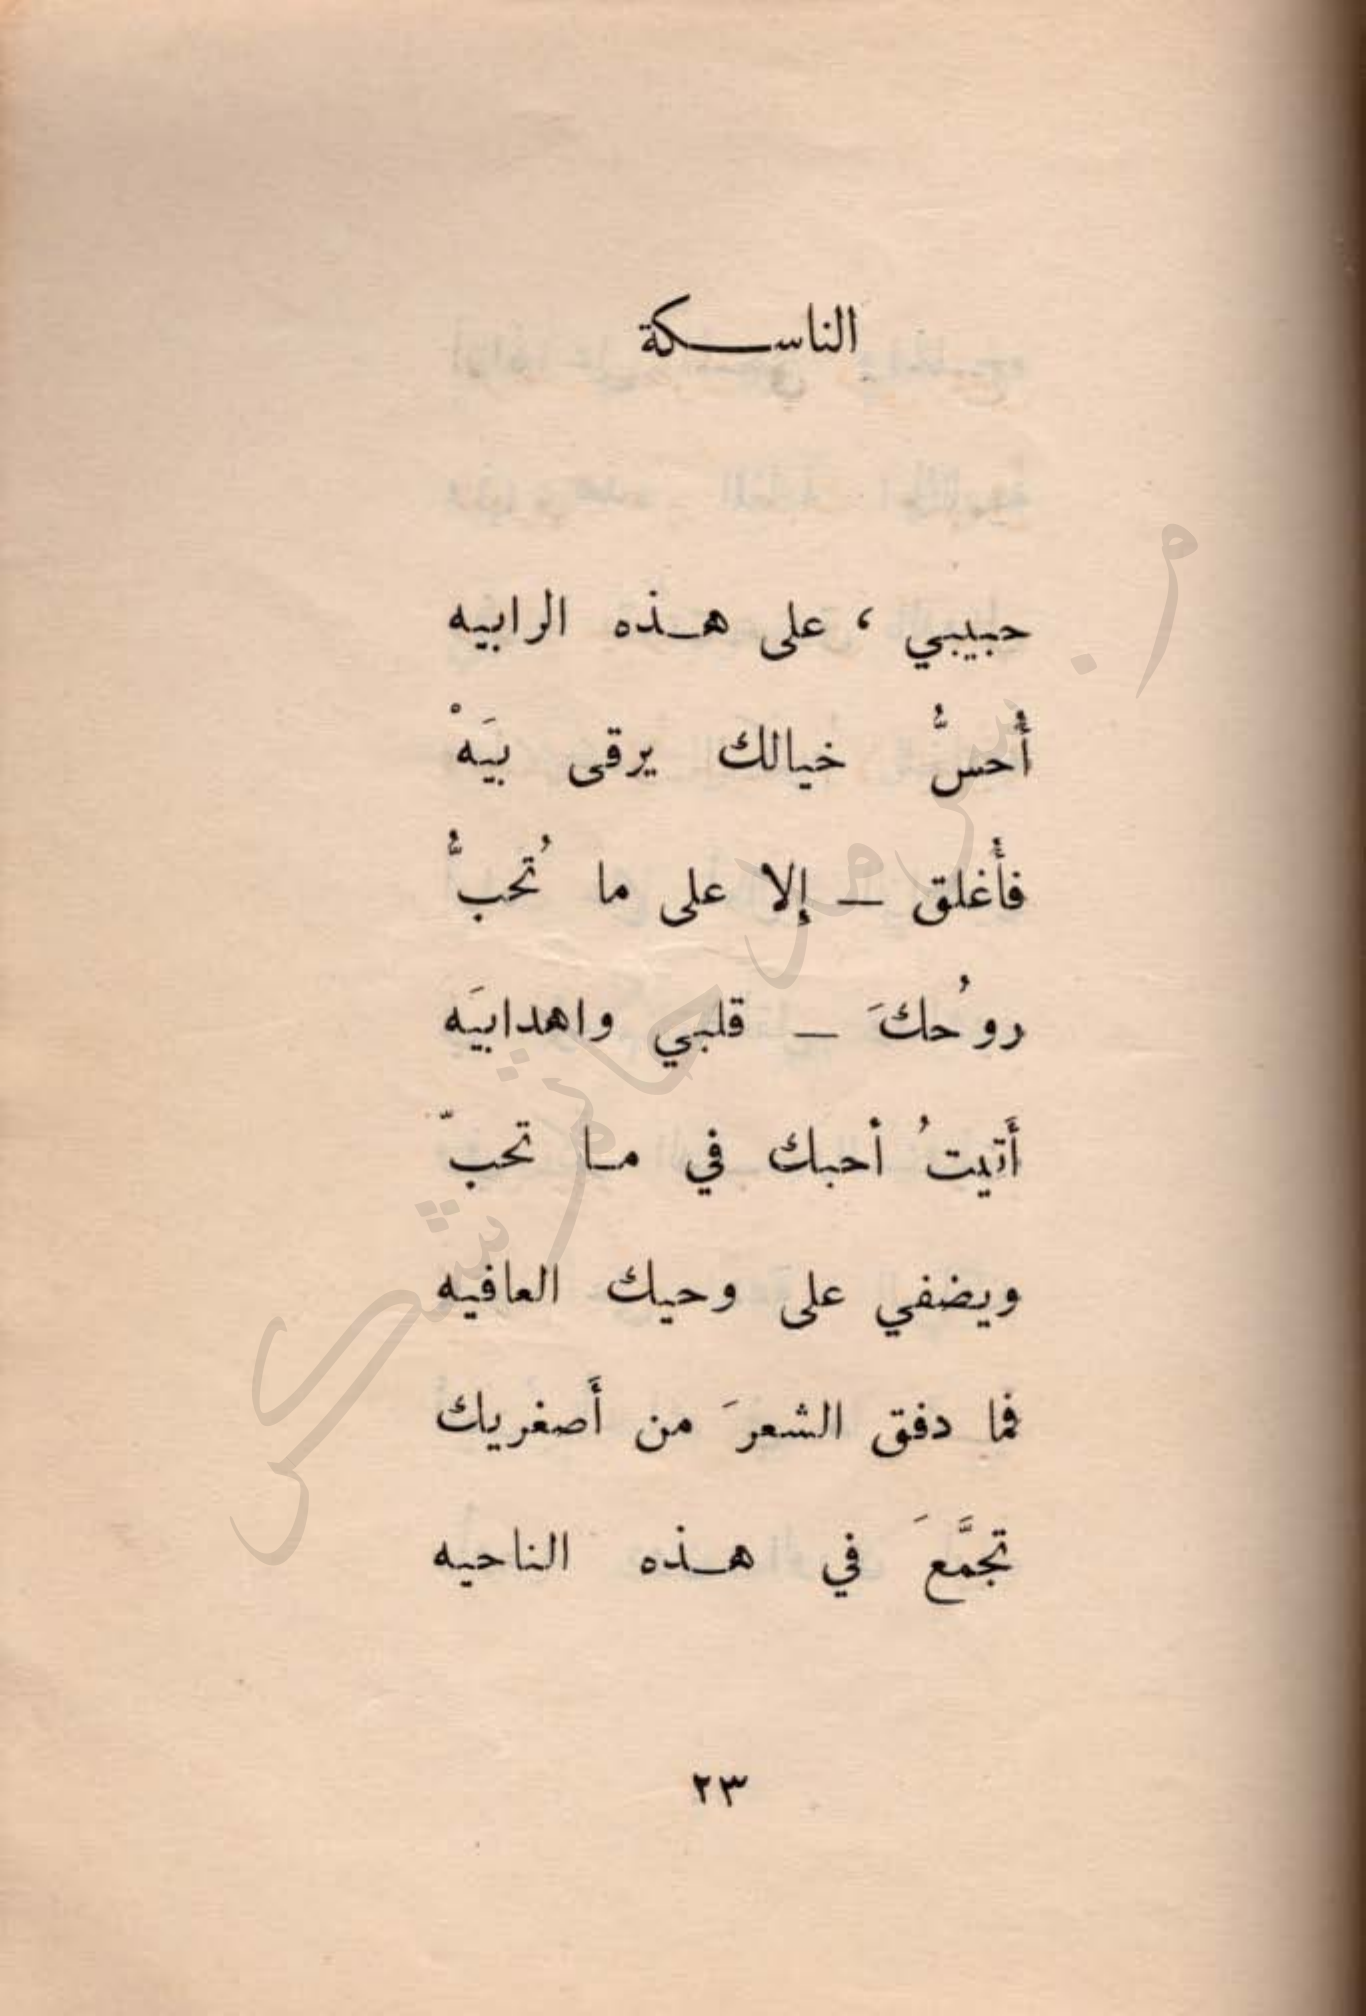 الناسكة
حبيبي ، على هذه الرابيه
أُحسُّ خيالك يرقى بيَهْ
فأُغلق – إلا على ما تُحبُّ
روُحكَ – قلبي واهدابيَه
أَتيتُ أحبك في ما تحبّ
ويضفي على وحيك العافيه
فما دفق الشعرَ من أَصغريك
تجمَّعَ في هذه الناحيه
٢٣